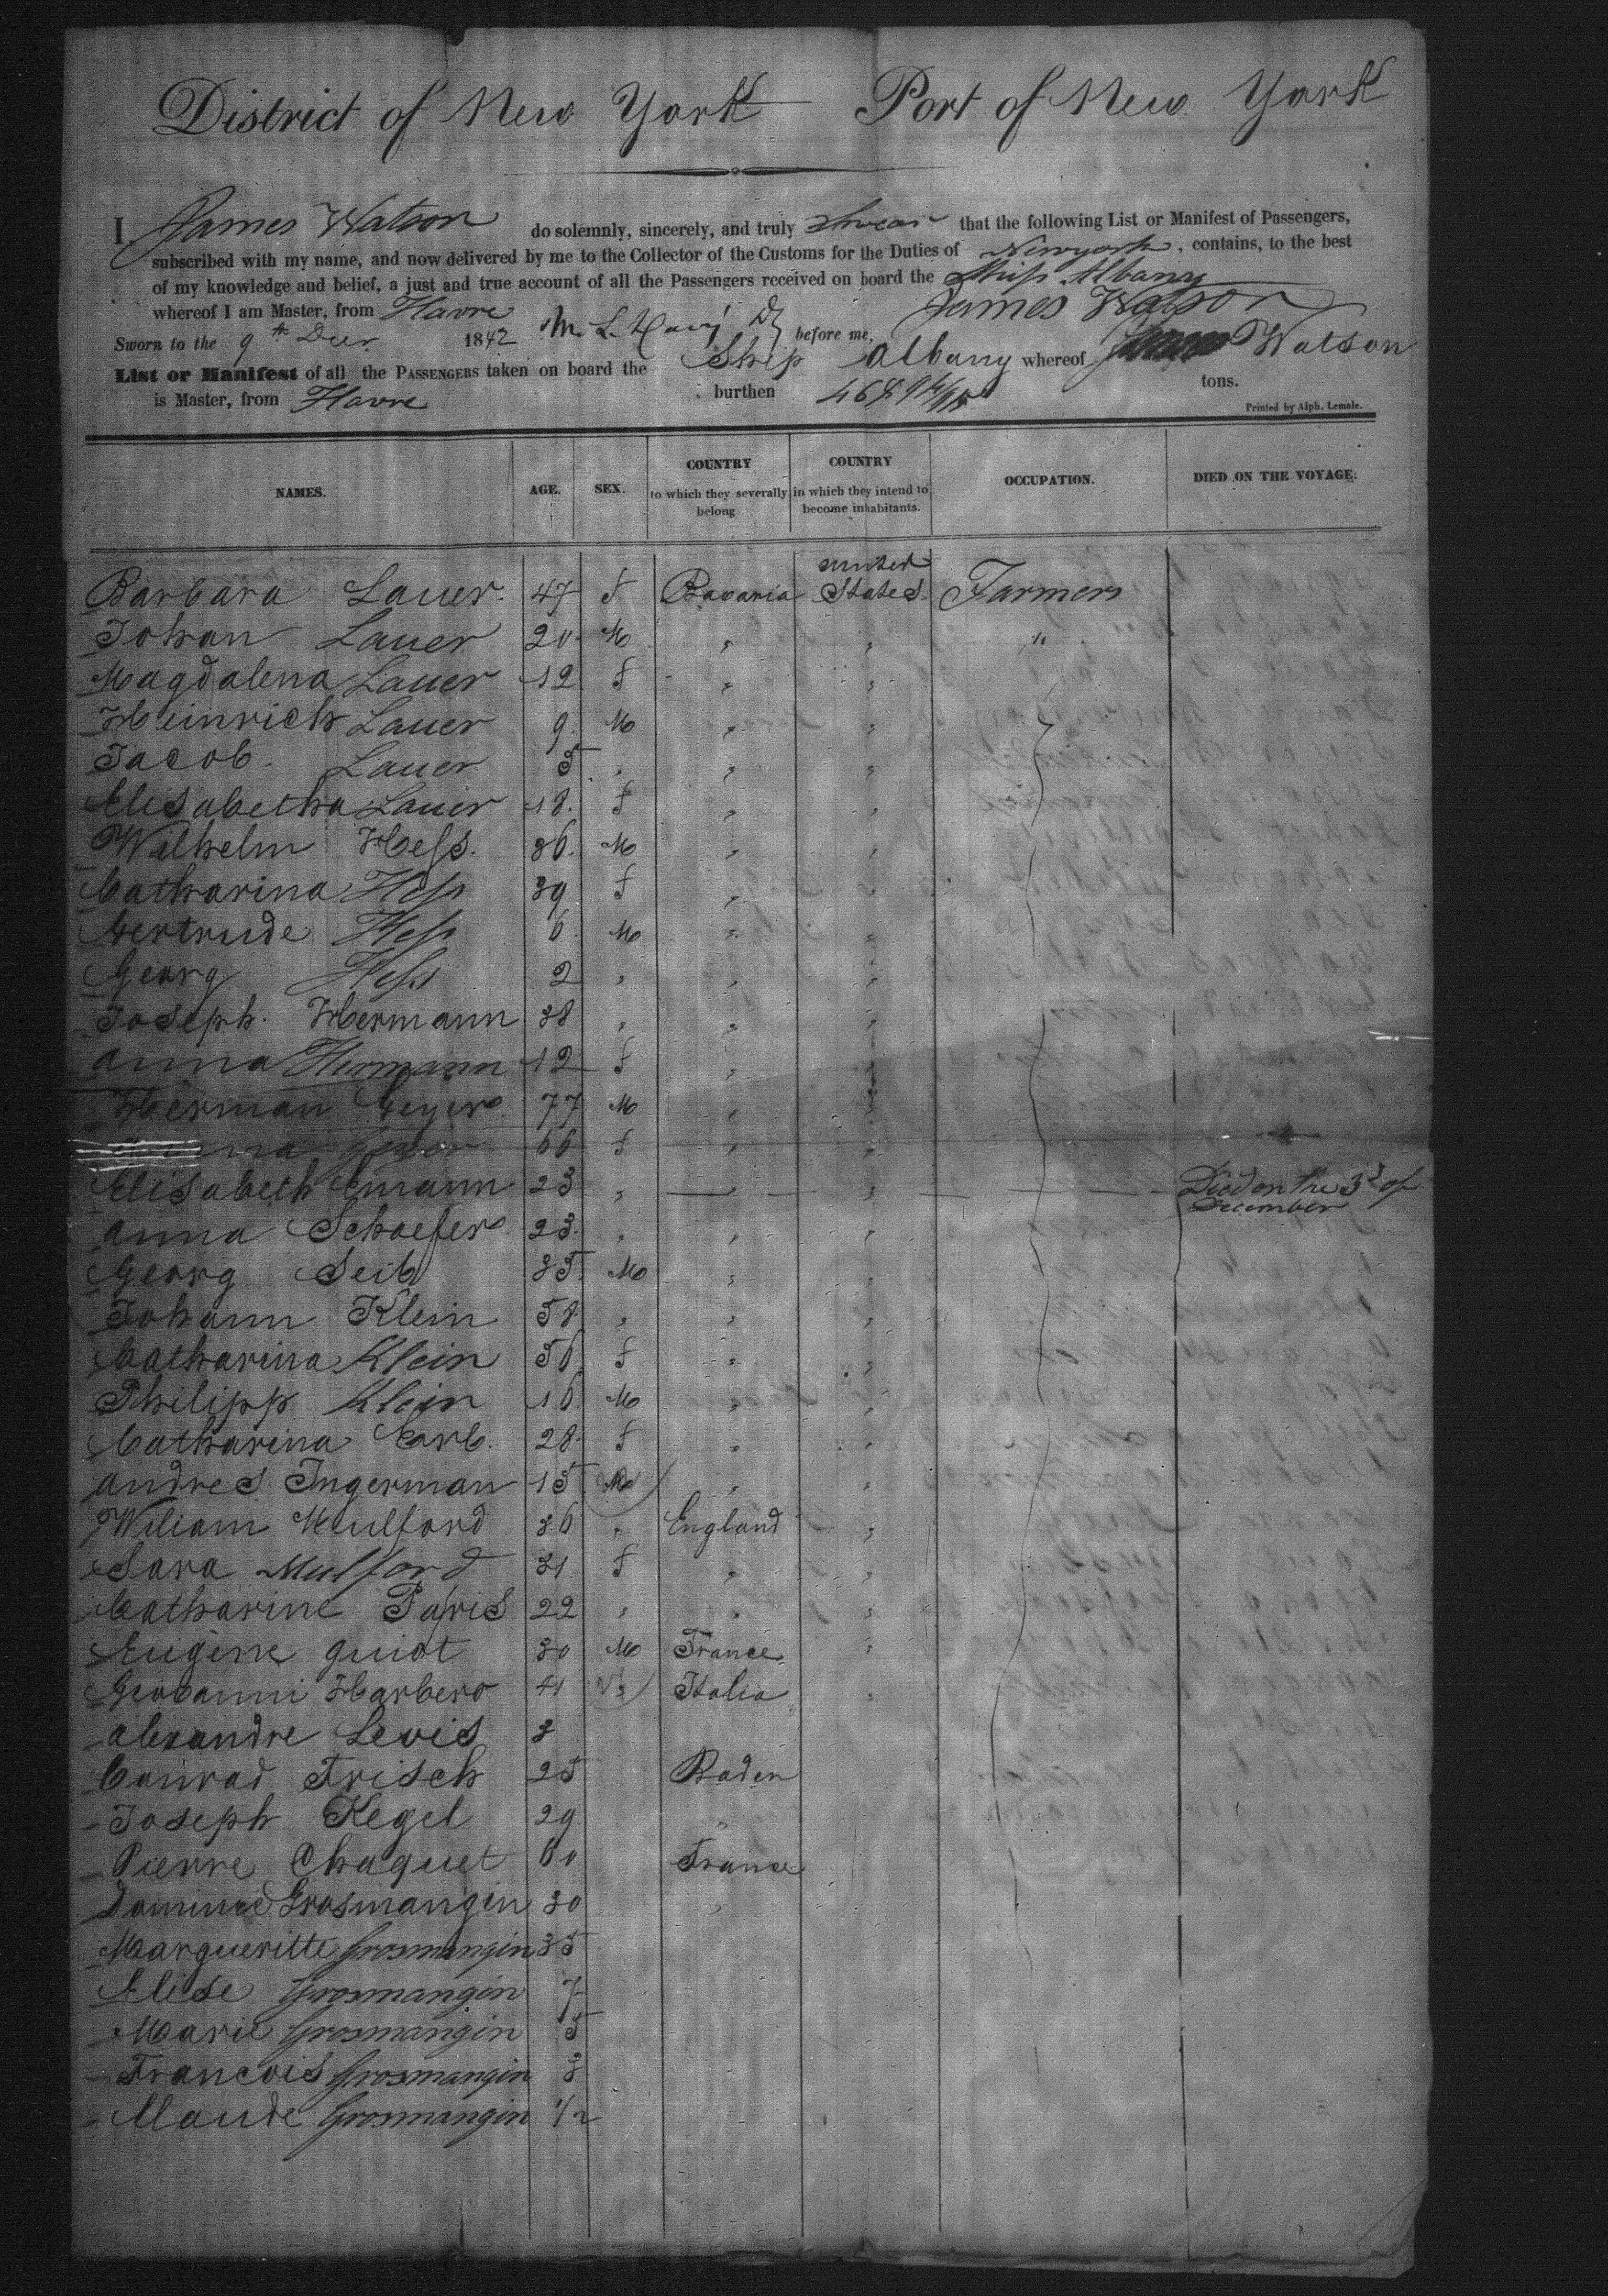 District of New York Port of New York
I James Watson do solemnly, sincerely, and truly swear that the following List or Manifest of Passengers,
subscribed with my name, and now delivered by me to the Collector of the Customs for the Duties of Newyork, contains, to the best
of my knowledge and belief, a just and true account of all the Passengers received on board the Ship Albany
whereof I am Master, from Havre James Watson
Sworn to the 9th Decr 1842 before me,
List or Manifest of all the PASSENGERS taken on board the Ship Albany whereof Watson
is Master, from Havre burthen tons.
Printed by Alph. Lemale.
NAMES. AGE. SEX. COUNTRY to which they severally belong COUNTRY in which they intend to become inhabitants. OCCUPATION. DIED ON THE VOYAGE.
Barbara Lauer. 47 f Bavaria united States. Farmers
Johan Lauer 20 M " " "
Magdalena Lauer 12 f " "
Heinrich Lauer 9 M " "
Jacob. Lauer 5 " " "
Elisabetha Lauer 18. f " "
Wilhelm Hess. 36. M " "
Catharina Hess 39 f " "
Gertrude Hess 6 M " "
Georg Hess 2 " " "
Joseph. Hermann 38 " " "
Anna Hermann 12 f " "
Herman Geyer 77 M " "
66 f "
Elisabeth Emann 23 " " Died on the 3d of December
Anna Schaefer 23. " " "
Georg Seib 35. M " "
Johann Klein 58 " " "
Catharina Klein 56 f " "
Philipp Klein 16 M " "
Catharina Erb. 28 f " "
Andres Ingerman 15 M " "
Wiliam Mulford 36 " England "
Sara Mulford 31 f " "
Catharine Paris 22 " " "
Eugène guiot 30 M France "
Giovanni Harbero 41 " Italia "
Alexandre Levis 3
Conrad Frisch 25 Baden
Joseph Kegel 29 "
Pierre Chaquet 60 France
Grosmangin 30
Margueritte Grosmangin 35
Elise Grosmangin 7
Marie Grosmangin 5
Francois Grosmangin 3
Grosmangin 1/2